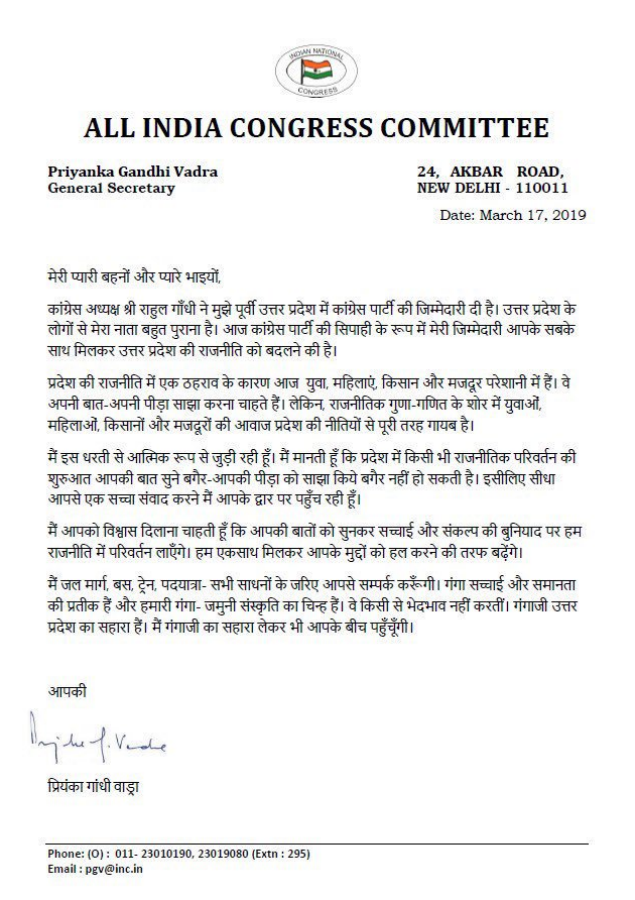 INDIAN NATIONAL
CONGRESS
ALL INDIA CONGRESS COMMITTEE
Priyanka Gandhi Vadra
General Secretary
24, AKBAR ROAD,
NEW DELHI - 110011
Date: March 17, 2019
मेरी प्यारी बहनों और प्यारे भाइयों,
कांग्रेस अध्यक्ष श्री राहुल गाँधी ने मुझे पूर्वी उत्तर प्रदेश में कांग्रेस पार्टी की जिम्मेदारी दी है। उत्तर प्रदेश के
लोगों से मेरा नाता बहुत पुराना है। आज कांग्रेस पार्टी की सिपाही के रूप में मेरी जिम्मेदारी आपके सबके
साथ मिलकर उत्तर प्रदेश की राजनीति को बदलने की है।
प्रदेश की राजनीति में एक ठहराव के कारण आज युवा, महिलाएं, किसान और मजदूर परेशानी में हैं। वे
अपनी बात-अपनी पीड़ा साझा करना चाहते हैं। लेकिन, राजनीतिक गुणा-गणित के शोर में युवाओं,
महिलाओं, किसानों और मजदूरों की आवाज प्रदेश की नीतियों से पूरी तरह गायब है।
मैं इस धरती से आत्मिक रूप से जुड़ी रही हूँ। मैं मानती हूँ कि प्रदेश में किसी भी राजनीतिक परिवर्तन की
शुरुआत आपकी बात सुने बगैर-आपकी पीड़ा को साझा किये बगैर नहीं हो सकती है। इसीलिए सीधा
आपसे एक सच्चा संवाद करने मैं आपके द्वार पर पहुँच रही हूँ।
मैं आपको विश्वास दिलाना चाहती हूँ कि आपकी बातों को सुनकर सच्चाई और संकल्प की बुनियाद पर हम
राजनीति में परिवर्तन लाएँगे। हम एकसाथ मिलकर आपके मुद्दों को हल करने की तरफ बढ़ेंगे।
मैं जल मार्ग, बस, ट्रेन, पदयात्रा- सभी साधनों के जरिए आपसे सम्पर्क करूँगी। गंगा सच्चाई और समानता
की प्रतीक हैं और हमारी गंगा- जमुनी संस्कृति का चिन्ह हैं। वे किसी से भेदभाव नहीं करतीं। गंगाजी उत्तर
प्रदेश का सहारा हैं। मैं गंगाजी का सहारा लेकर भी आपके बीच पहुँचूँगी।
आपकी
प्रियंका गांधी वाड्रा
Phone: (O) : 011- 23010190, 23019080 (Extn : 295)
Email : pgv@inc.in